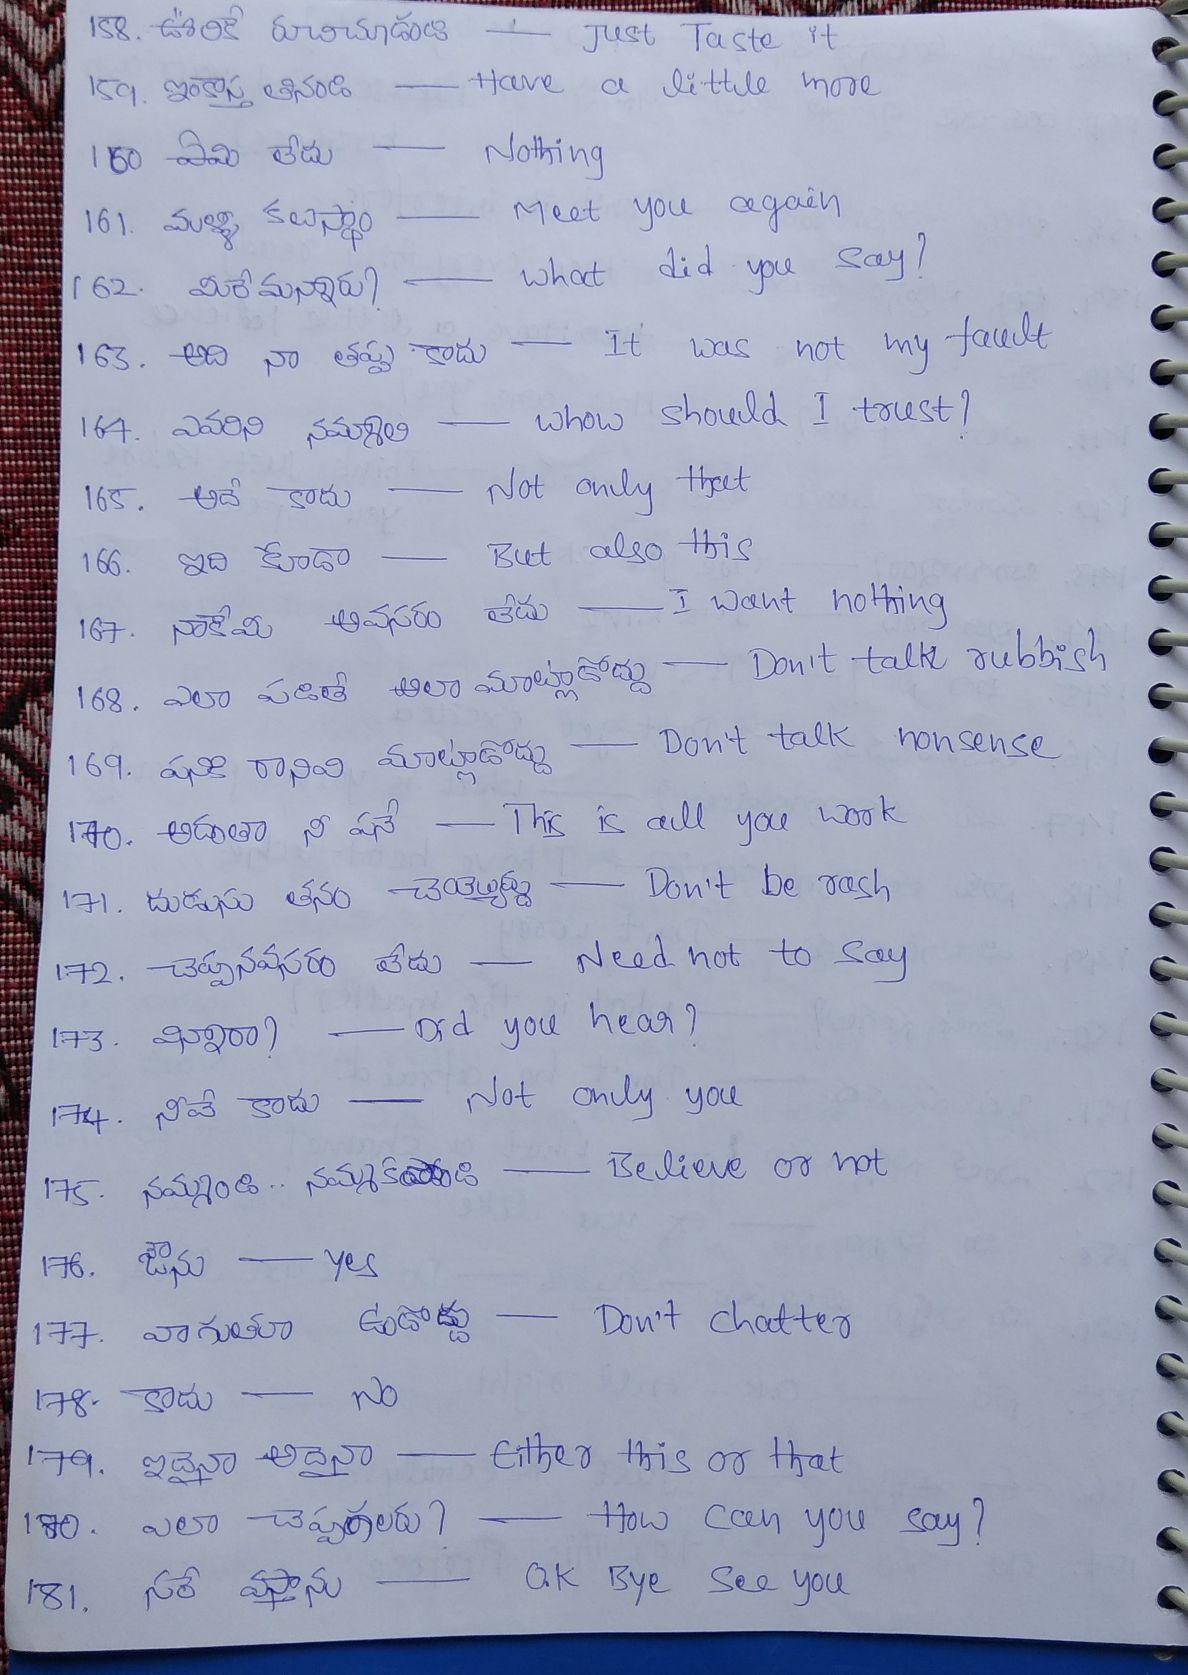 158. ఊరికే రుచిచూడండి — Just Taste it
159. ఇంకాస్త తినండి — Have a little more
160 ఏమి లేదు — Nothing
161. మళ్ళీ కలుస్తాం — Meet you again
162. మీరేమన్నారు? — what did you say?
163. అది నా తప్పు కాదు — It was not my fault
164. ఎవరిని నమ్మాలి — whow should I trust?
165. అదే కాదు — Not only that
166. ఇది కూడా — But also this
167. నాకేమి అవసరం లేదు — I want nothing
168. ఎలా పడితే అలా మాట్లాడొద్దు — Don't talk rubbish
169. పనికి రానివి మాట్లాడొద్దు — Don't talk nonsense
170. అదంతా నీ పనే — This is all you work
171. దుడుసు తనం — Don't be rash
172. చెప్పనవసరం లేదు — Need not to say
173. విన్నారా? — Did you hear?
174. నీవే కాదు — Not only you
175. నమ్మండి.. — Believe or not
176. ఔను — yes
177. వాగుతూ ఉండొద్దు — Don't chatter
178. కాదు — No
179. ఇదైనా అదైనా — Either this or that
180. ఎలా చెప్పగలరు? — How can you say?
181. సరే వస్తాను — O.K Bye See you